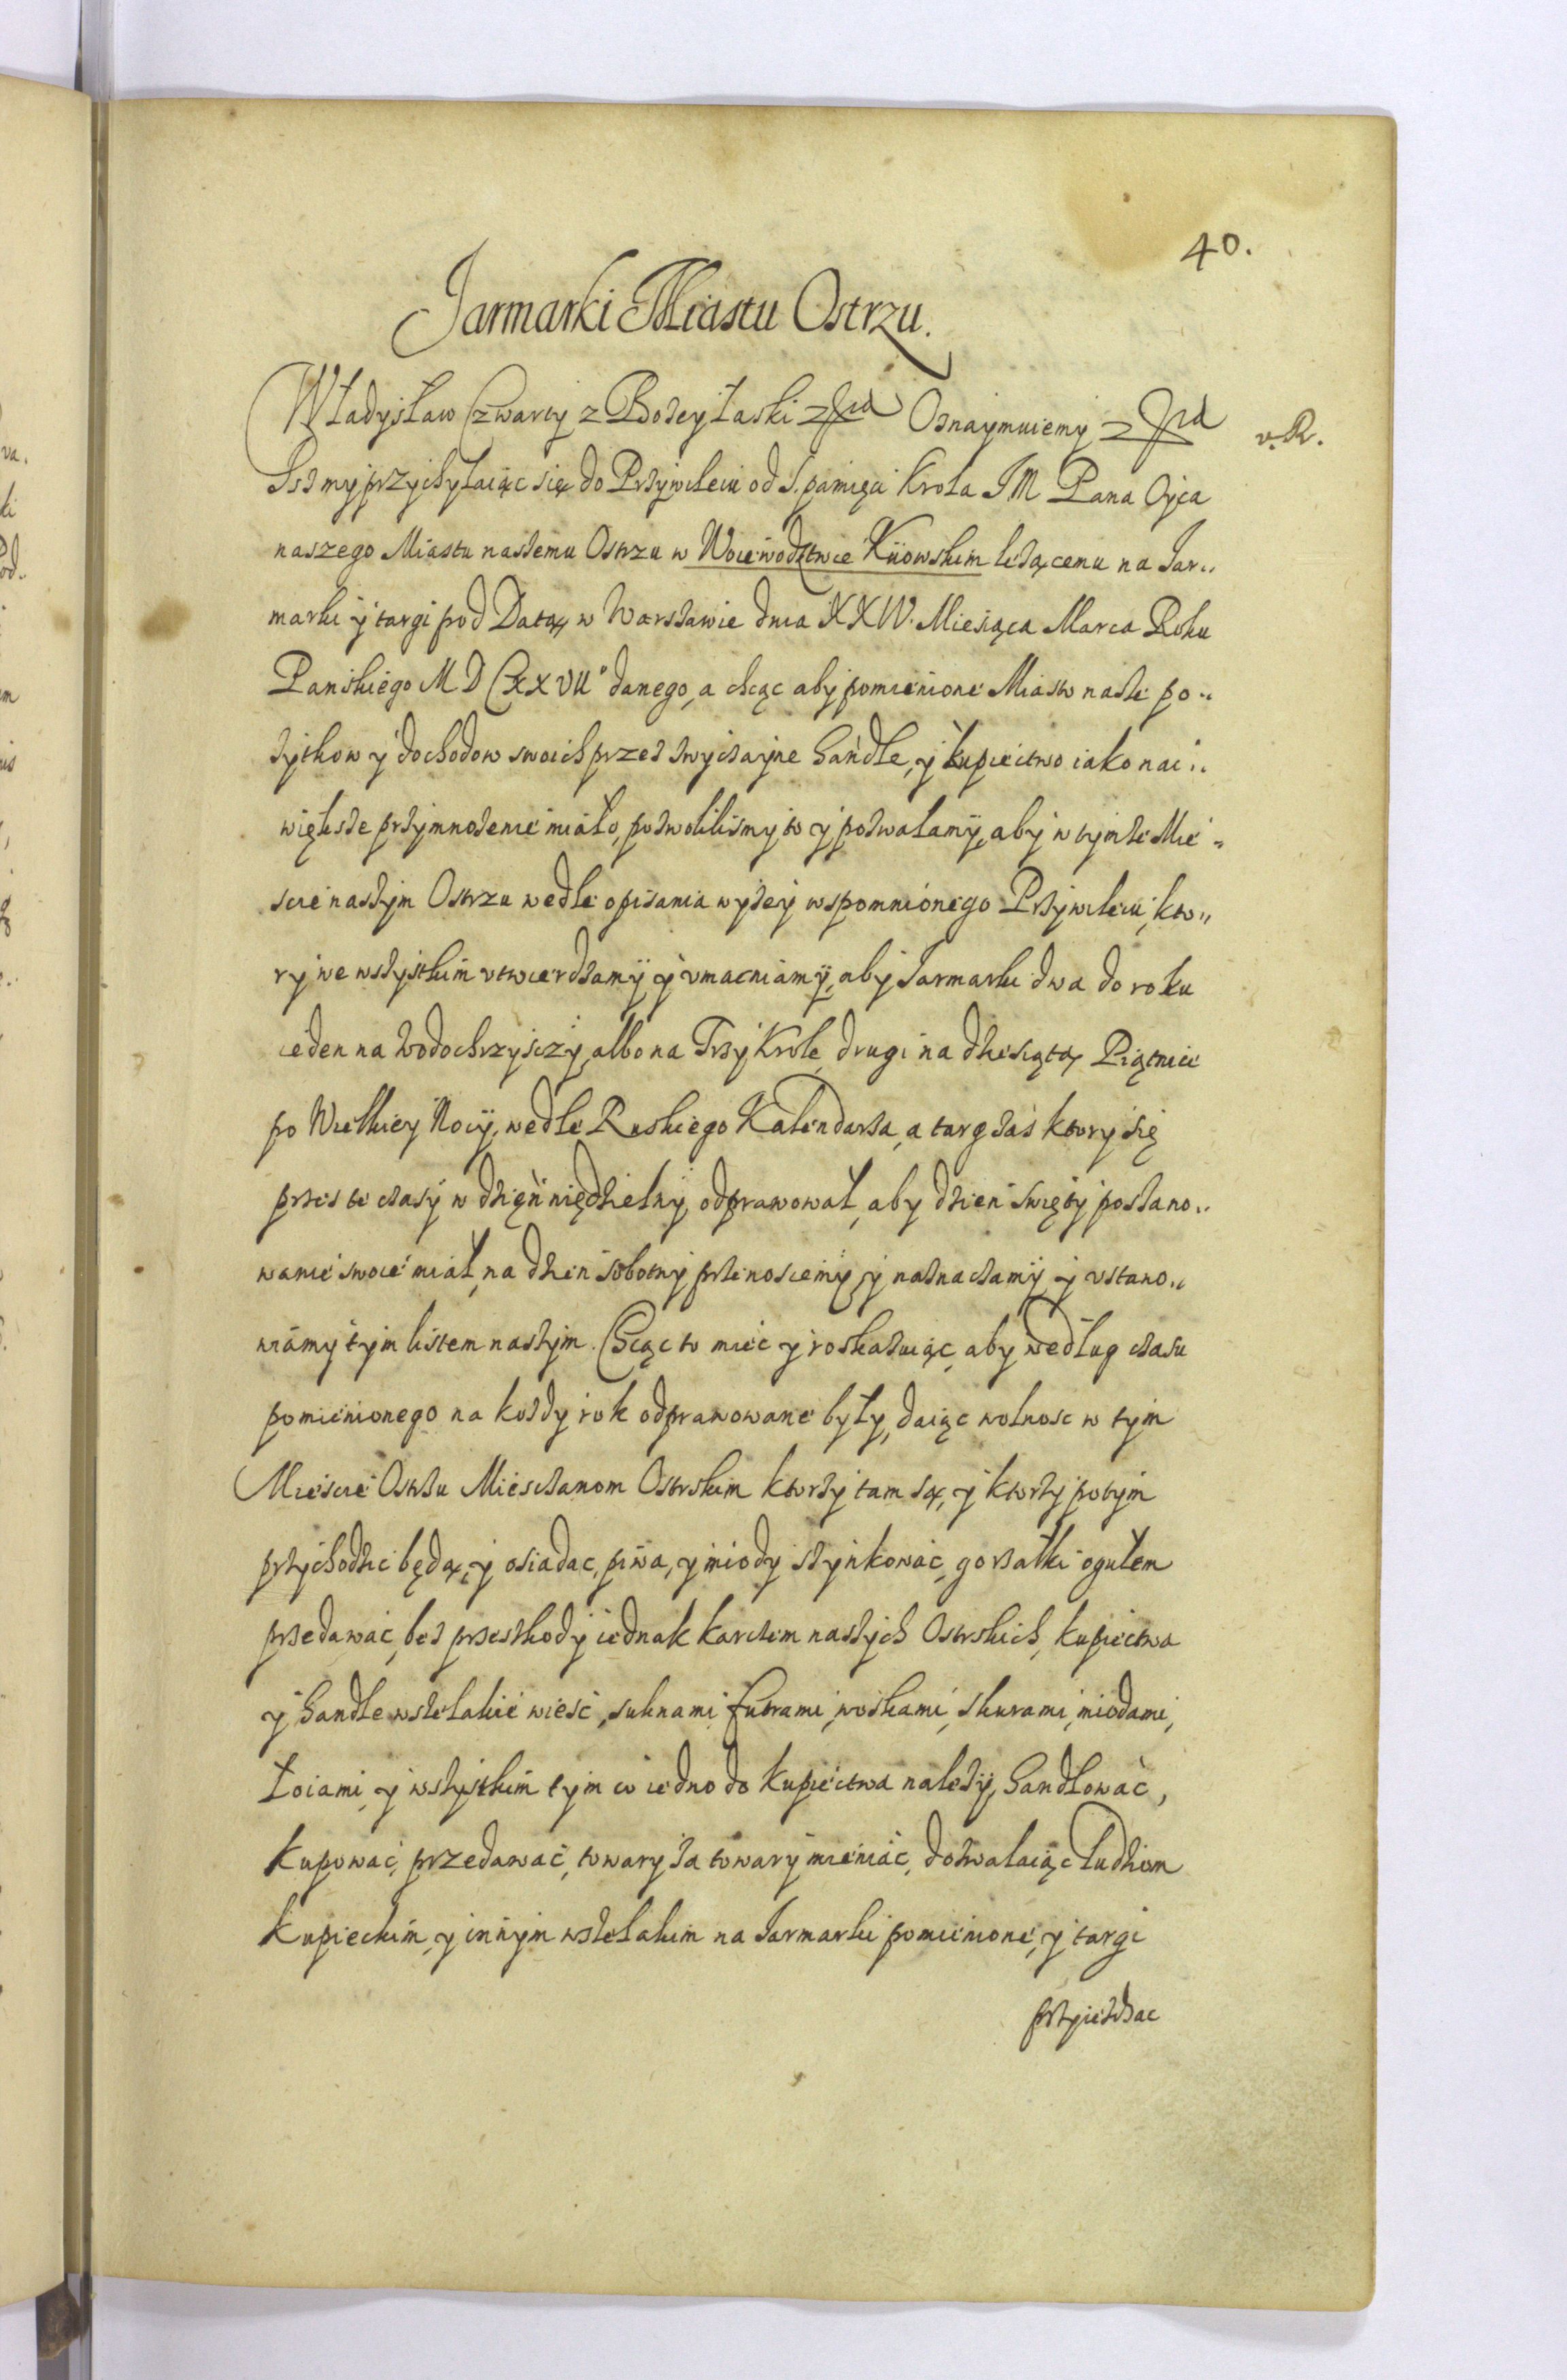 40.
Jarmarki Miastu Ostrzu.
Władysław Czwarty z Bożey łaski Oznaymuiemy v. R.
Isz my przychylaiąc się do Przywileiu od S. pamięci Krola JM Pana Oyca
naszego Miastu naszemu Ostrzu w Woiewodztwie Kiiowskim leżącemu na Jar„
marki y targi pod Datą w Warszawie dnia XXIV. Miesiąca Marca Roku
Panskiego M D CXXVII° danego, a chcąc aby pomienione Miasto nasze po„
żytkow y dochodow swoich przez zwyczayne handle, y kupiectwo iako nai„
większe przymnożenie miało, pozwolilismy to y pozwalamy, aby w tymże Mie„
scie naszym Ostrzu wedle opisania wyżey wspomnionego Przywileiu, kto„
ry we wszystkim vtwierdzamy y vmacniamy, aby Jarmarki dwa do roku
ieden na Wodochrzyszczy, albo na Trzy Krole, drugi na dziesiątą Piątnice
po Wielkiey Nocy, wedle Ruskiego Kalendarza, a targ zas ktory się
przes te czasy w dzięn niędzielny, odprawował, aby dzien swięty poszano„
wanie swoie miał, na dzien sobotny przenosiemy, y naznaczamy y vstano„
wiamy tym listem naszym. Chcąc to miec y roskazuiąc, aby według czasu
pomienionego na kożdy rok odprawowane były, daiąc wolnosc w tym
Miescie Ostrzu Miesczanom Ostrskim ktorzy tam są, y ktorzy potym
przychodzic będą, y osiadac, piwa, y miody szynkowac, gorzałki ogułem
przedawac, bez przeszkody iednak karczem naszych Ostrskich, kupiectwa
y handle wszelakie wiesć, suknami, futrami, woskami, skurami, miodami,
łoiami, y wszystkim tym co iedno do kupiectwa należy, handlować,
kupować, przedawać, towary za towary mieniać, dozwalaiąc ludziom
kupieckim, y innym wszelakim na Jarmarki pomienione, y targi
przyieżdzac